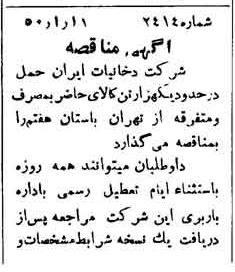 شماره ۲۴۱۴ ۵۰/۱/۱۱
آگهی مناقصه
شرکت دخانیات ایران حمل
در حدود یکهزار تن کالای حاضر بمصرف
و متفرقه از تهران باستان هفتم را
بمناقصه می گذارد
داوطلبان میتوانند همه روزه
باستثناء ایام تعطیل رسمی باداره
باربری این شرکت مراجعه پس از
دریافت یك نسخه شرایط مشخصات و